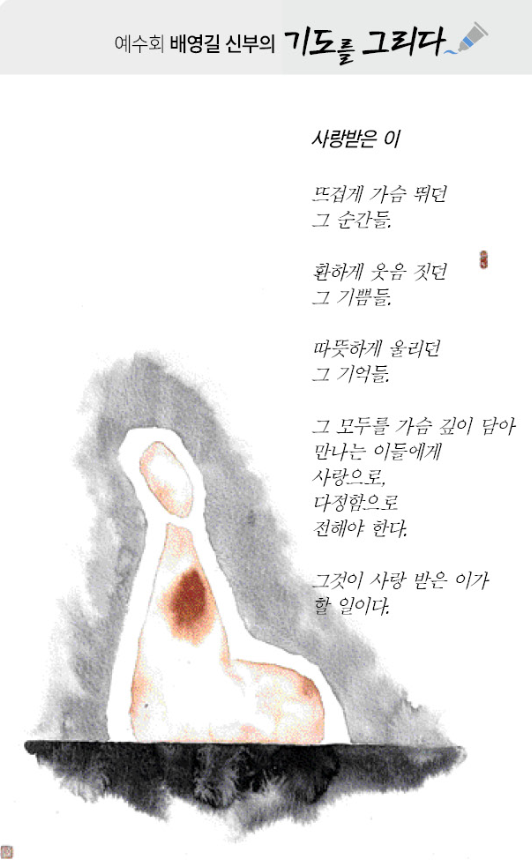 예수회 배영길 신부의 기도를 그리다
사랑받은 이
뜨겁게 가슴 뛰던
그 순간들.
환하게 웃음 짓던
그 기쁨들.
따뜻하게 울리던
그 기억들.
그 모두를 가슴 깊이 담아
만나는 이들에게
사랑으로,
다정함으로
전해야 한다.
그것이 사랑 받은 이가
할 일이다.